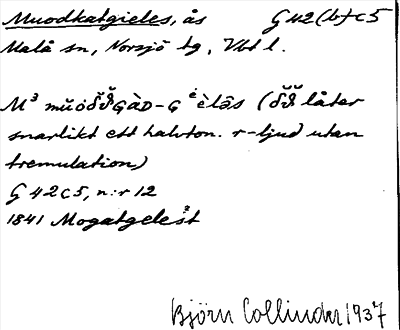 Muodkatgieles, ås G 42(b)c5
Malå sn, Norsjö tg, Vbt l.
M³
(δ̆ϑ̆ låter
snarlikt ett halvton. r-ljud utan
tremulation)
G 42c5, n:r 12
1841 Mogatgele
Björn Collinder 1937